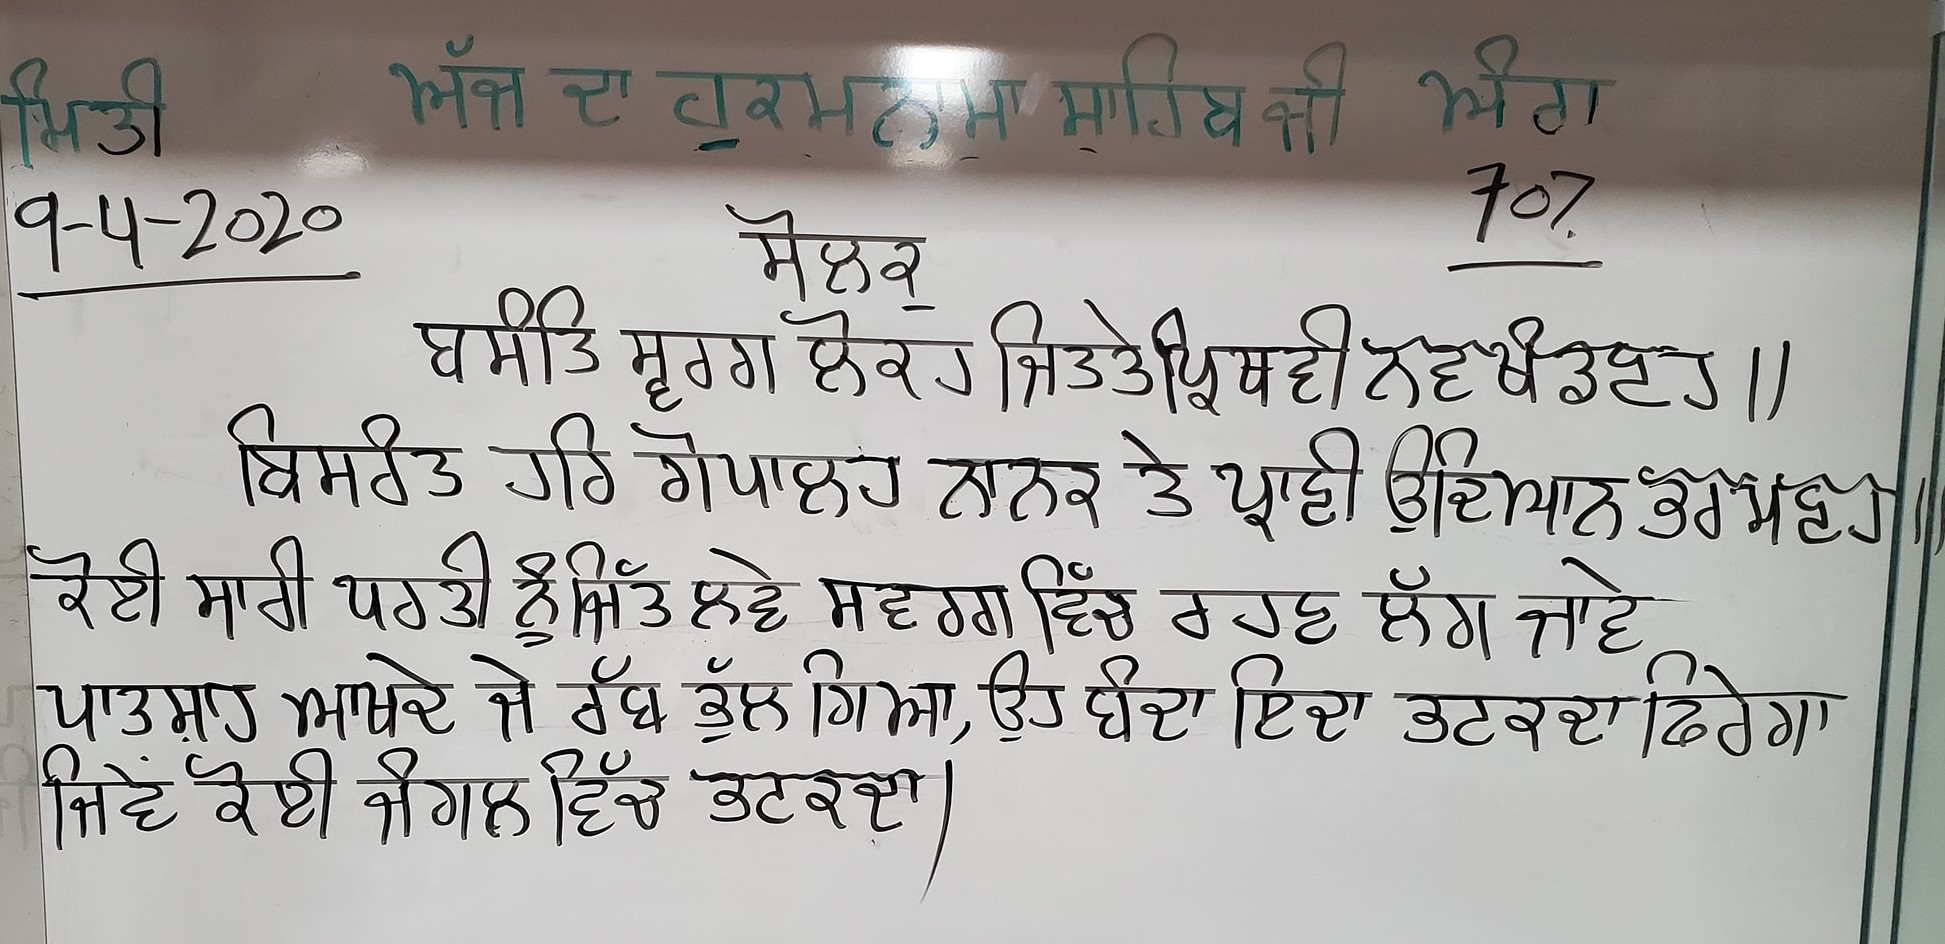 ਮਿਤੀ ਅੱਜ ਦਾ ਹੁਕਮਨਾਮਾ ਸਾਹਿਬ ਜੀ ਅੰਗ
9-4-2020 707
ਸੋਲਕ
ਬਸੰਤਿ ਸ੍ਵਰਗ ਲੋਕਹ ਜਿਤਤੇ ਪ੍ਰਿਥਵੀ ਨਵ ਖੰਡਣਹ ॥
ਬਿਸਰੰਤ ਹਰਿ ਗੋਪਾਲਹ ਨਾਨਕ ਤੇ ਪ੍ਰਾਣੀ ਉਦਿਆਨ ਭਰਮਣਹ ॥
ਕੋਈ ਸਾਰੀ ਧਰਤੀ ਨੂੰ ਜਿੱਤ ਲਵੇ ਸਵਰਗ ਵਿੱਚ ਰਹਣ ਲੱਗ ਜਾਵੇ
ਪਾਤਸ਼ਾਹ ਆਖਦੇ ਜੇ ਰੱਬ ਭੁੱਲ ਗਿਆ, ਉਹ ਬੰਦਾ ਇਦਾ ਭਟਕਦਾ ਫਿਰੇਗਾ
ਜਿਵੇਂ ਕੋਈ ਜੰਗਲ ਵਿੱਚ ਭਟਕਦਾ।